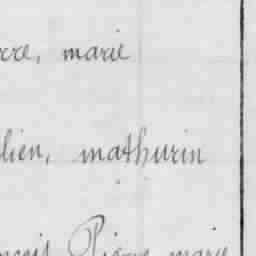 rre, marie
lien, mathurin
nçois Pierre marie